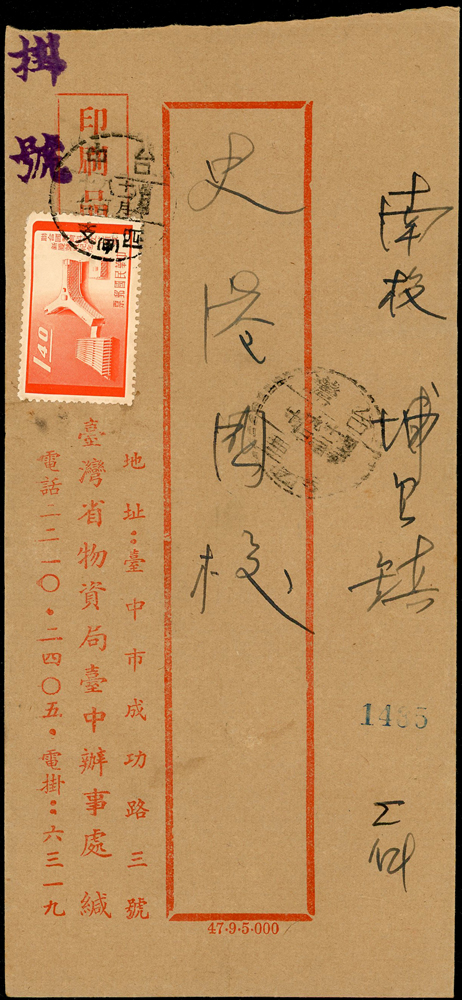 掛號
印刷品
南投 埔里鎮
1485
史港國校
台中
1.40
地址：臺中市成功路三號
臺灣省物資局臺中辦事處緘
電話二二一〇・二四〇五・電掛：六三一九
47·9·5·000